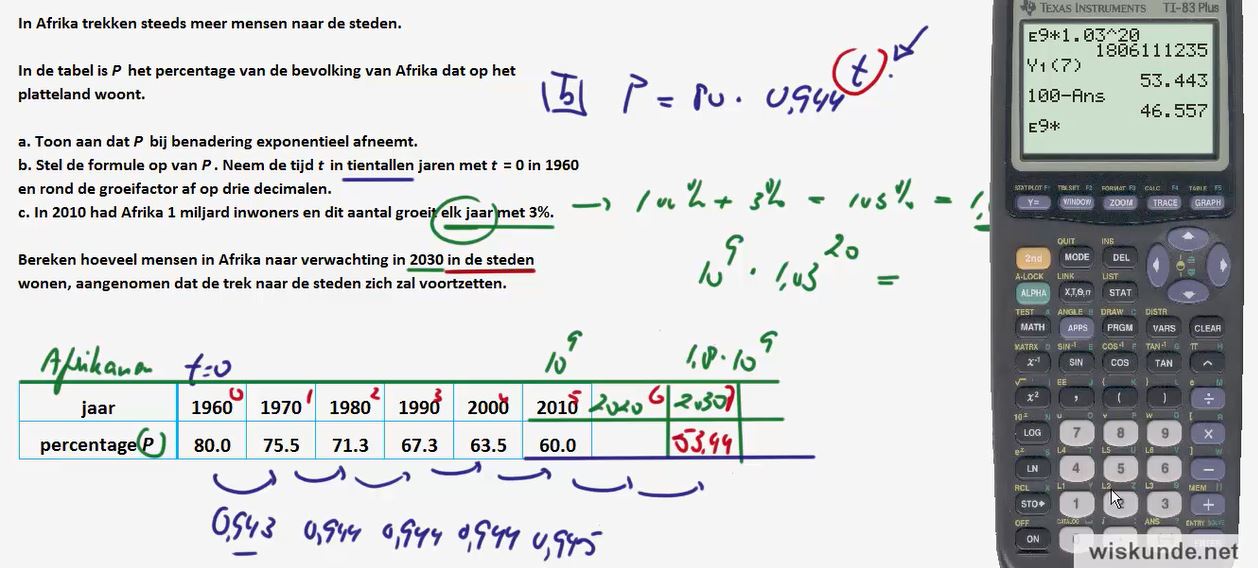 In Afrika trekken steeds meer mensen naar de steden.
In de tabel is P het percentage van de bevolking van Afrika dat op het
platteland woont.
a. Toon aan dat P bij benadering exponentieel afneemt.
b. Stel de formule op van P. Neem de tijd t in tientallen jaren met t = 0 in 1960
en rond de groeifactor af op drie decimalen.
c. In 2010 had Afrika 1 miljard inwoners en dit aantal groeit elk jaar met 3%.
Bereken hoeveel mensen in Afrika naar verwachting in 2030 in de steden
wonen, aangenomen dat de trek naar de steden zich zal voortzetten.
b P = 80 · 0,944^t
→ 100% + 3% = 103% = 1,
10^9 · 1,03^20 =
Afrikanen t=0 10^9 1.8·10^9
jaar 1960 0 1970 1 1980 2 1990 3 2000 4 2010 5 2020 6 2030 7
percentage P 80.0 75.5 71.3 67.3 63.5 60.0 53,44
0,943 0,944 0,944 0,944 0,945
TEXAS INSTRUMENTS TI-83 Plus
E9*1.03^20
1806111235
Y1(7)
53.443
100-Ans
46.557
E9*
STAT PLOT F1 TBLSET F2 FORMAT F3 CALC F4 TABLE F5
Y= WINDOW ZOOM TRACE GRAPH
QUIT INS
2nd MODE DEL
A-LOCK LINK LIST
ALPHA X,T,Θ,n STAT
TEST A ANGLE B DRAW C DISTR
MATH APPS PRGM VARS CLEAR
MATRX D SIN-1 E COS-1 F TAN-1 G π H
x-1 SIN COS TAN ^
√ I EE J { K } L e M
x2 , ( ) ÷
10x N u O v P w Q [ R
LOG 7 8 9 ×
ex S L4 T L5 U L6 V ] W
LN 4 5 6 −
RCL X L1 Y L2 Z L3 θ MEM "
STO▸ 1 2 3 +
OFF CATALOG i ANS ENTRY SOLVE
ON
wiskunde.net